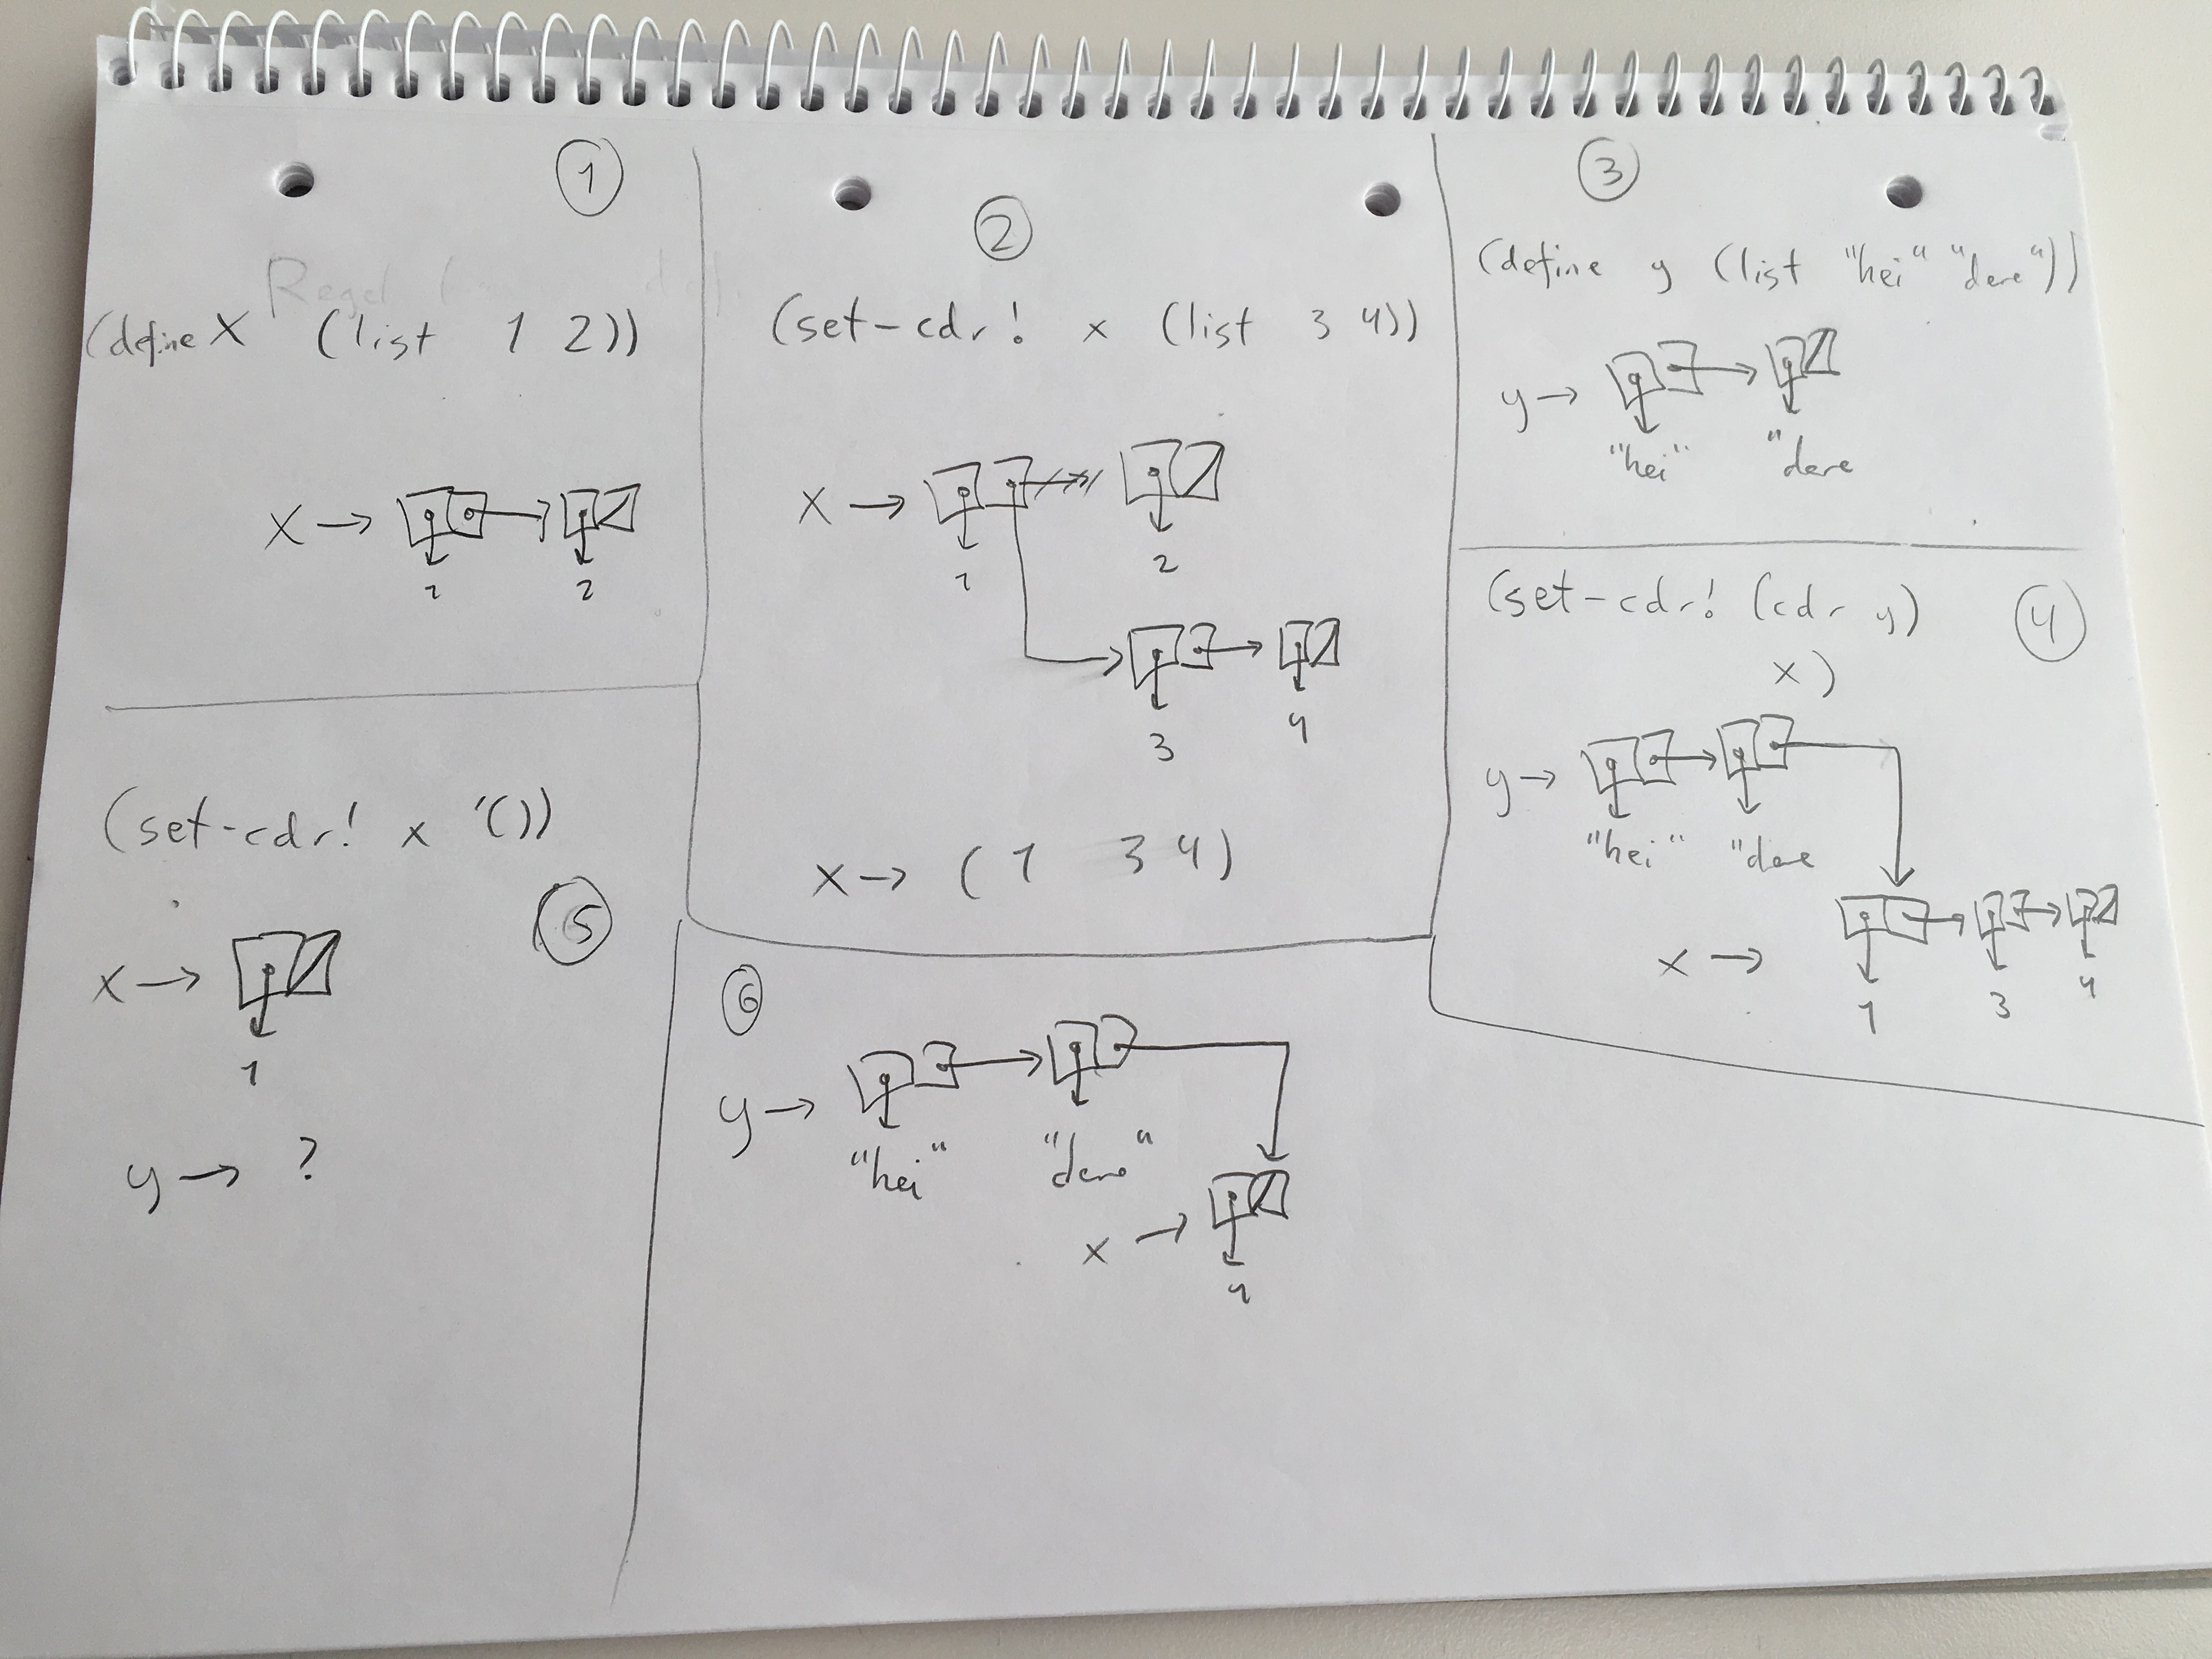 ①
(define X (list 1 2))
X →
1 2
②
(set-cdr! x (list 3 4))
X →
1 2
3 4
x → (1 3 4)
③
(define y (list "hei" "dere"))
y →
"hei" "dere
④
(set-cdr! (cdr y)
x)
y →
"hei" "dere
x →
1 3 4
(set-cdr! x '())
⑤
x →
1
y → ?
⑥
y →
"hei" "dere"
x →
Regel